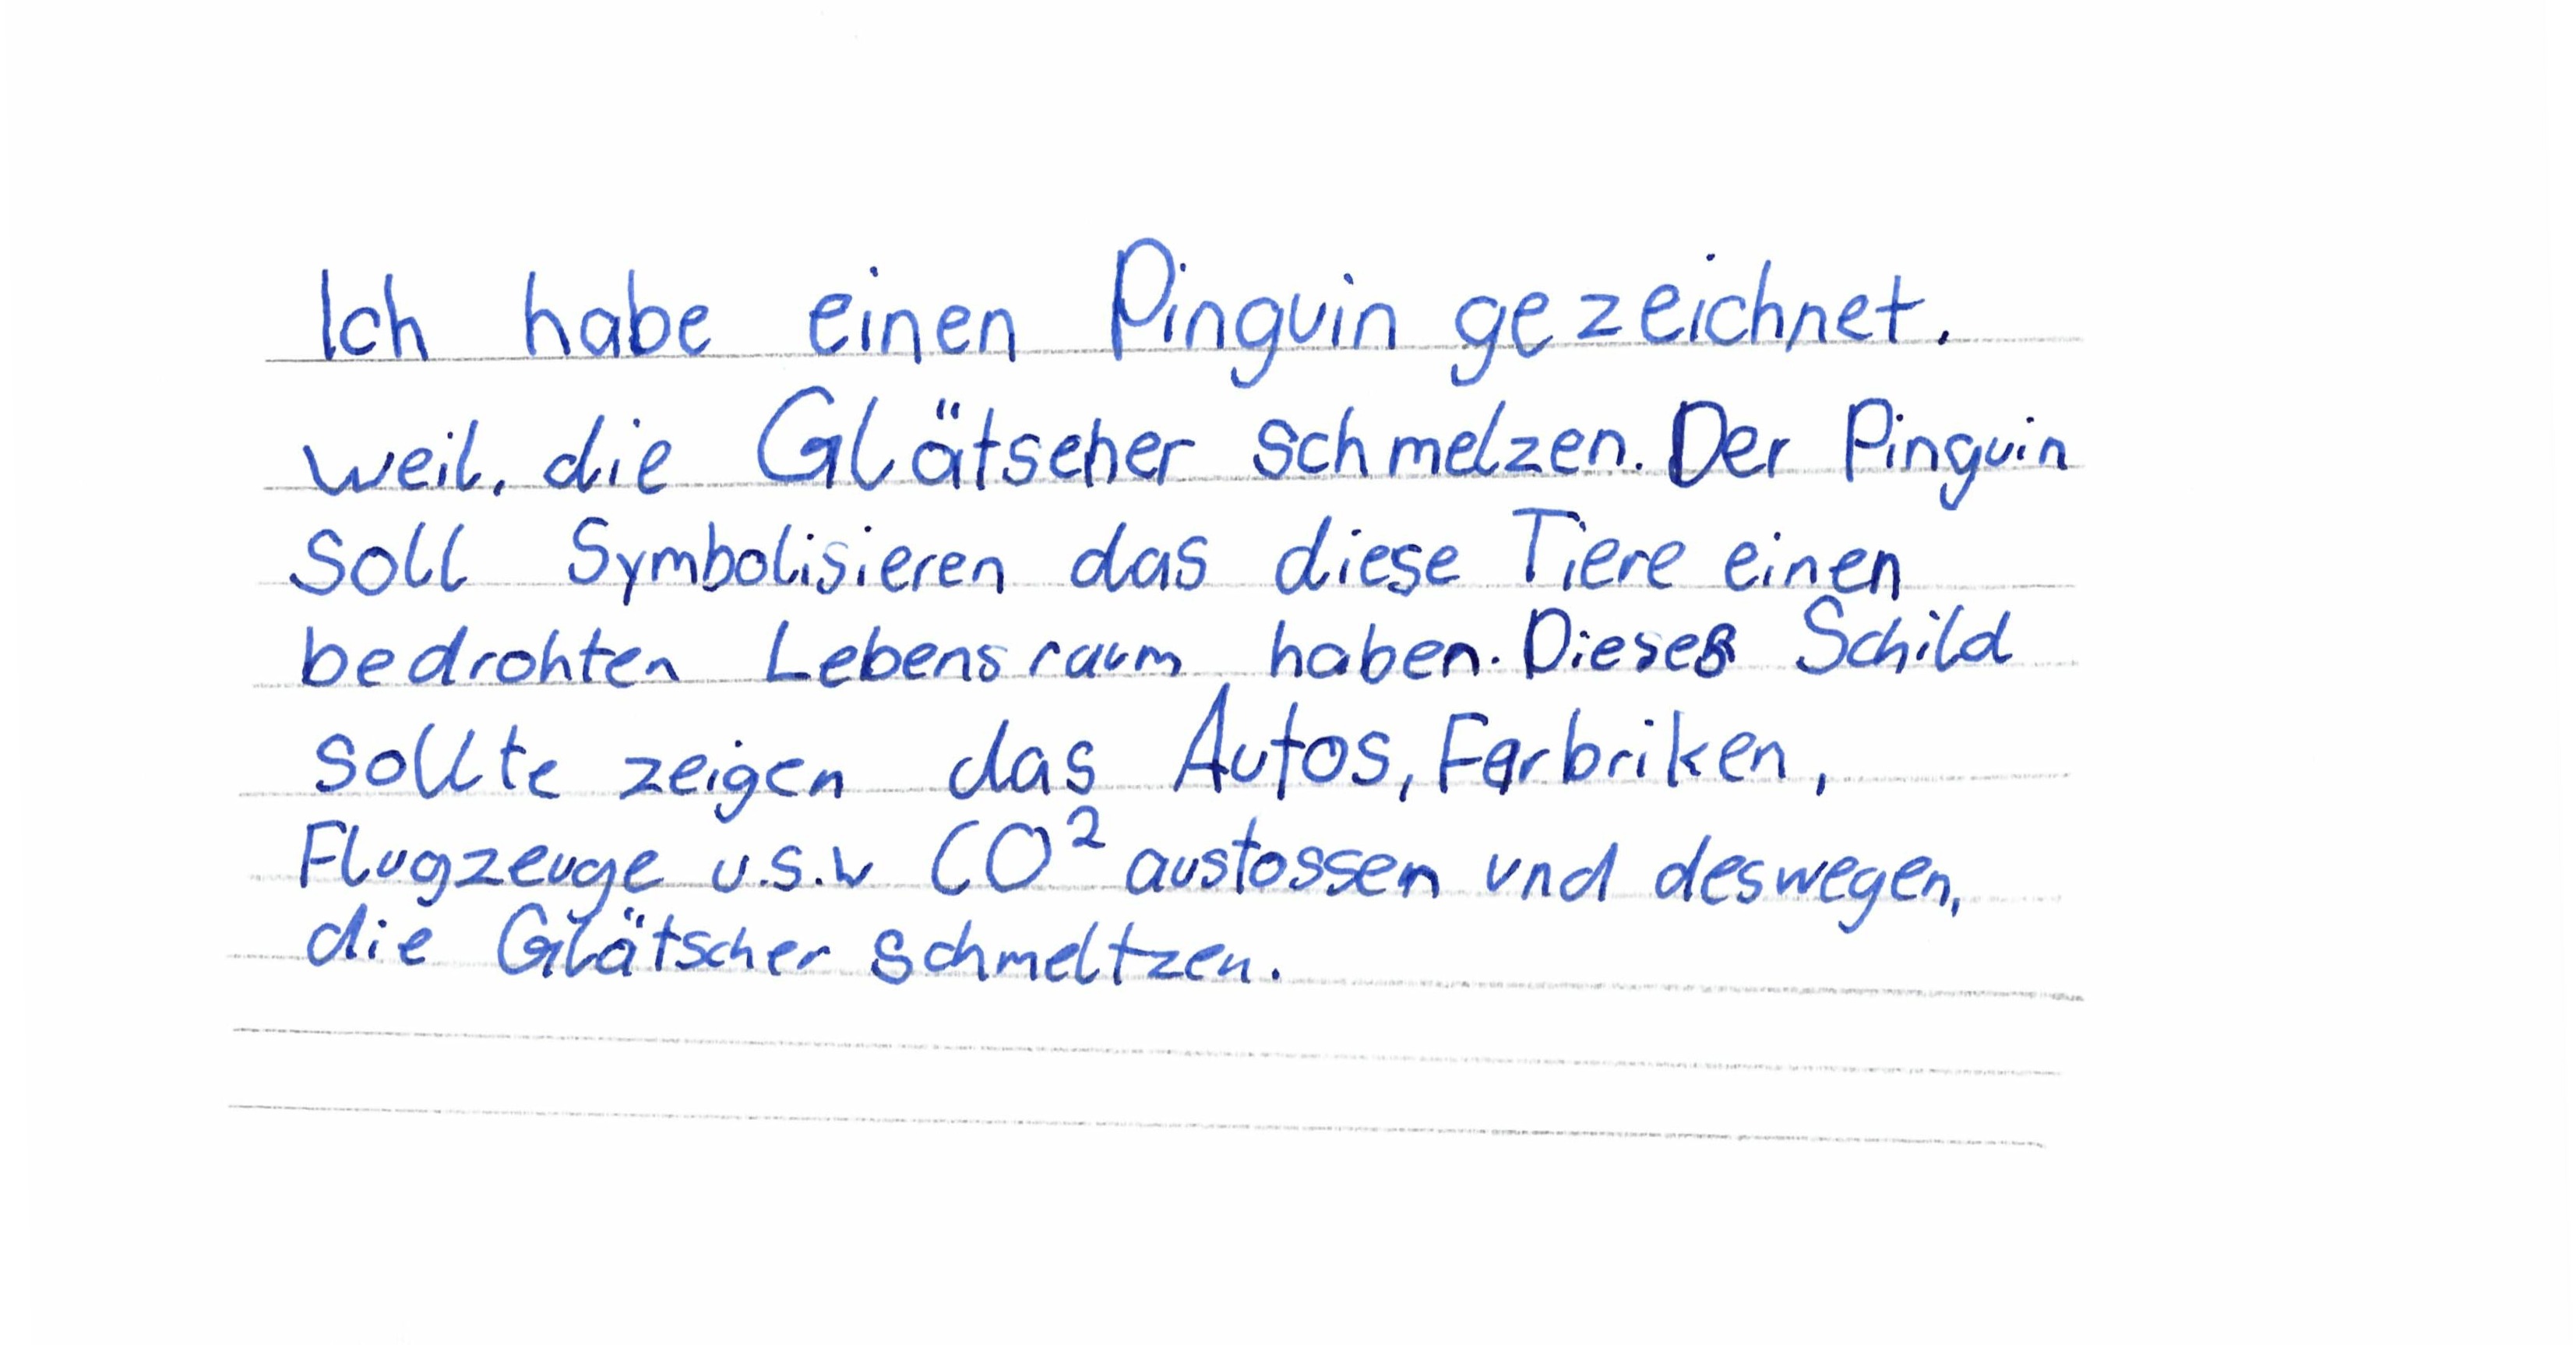 Ich habe einen Pinguin gezeichnet.
weil, die Glätscher schmelzen. Der Pinguin
soll Symbolisieren das diese Tiere einen
bedrohten Lebensraum haben. Dieses Schild
sollte zeigen das Autos, Farbriken,
Flugzeuge u.s.w CO² austossen und deswegen,
die Glätscher schmeltzen.